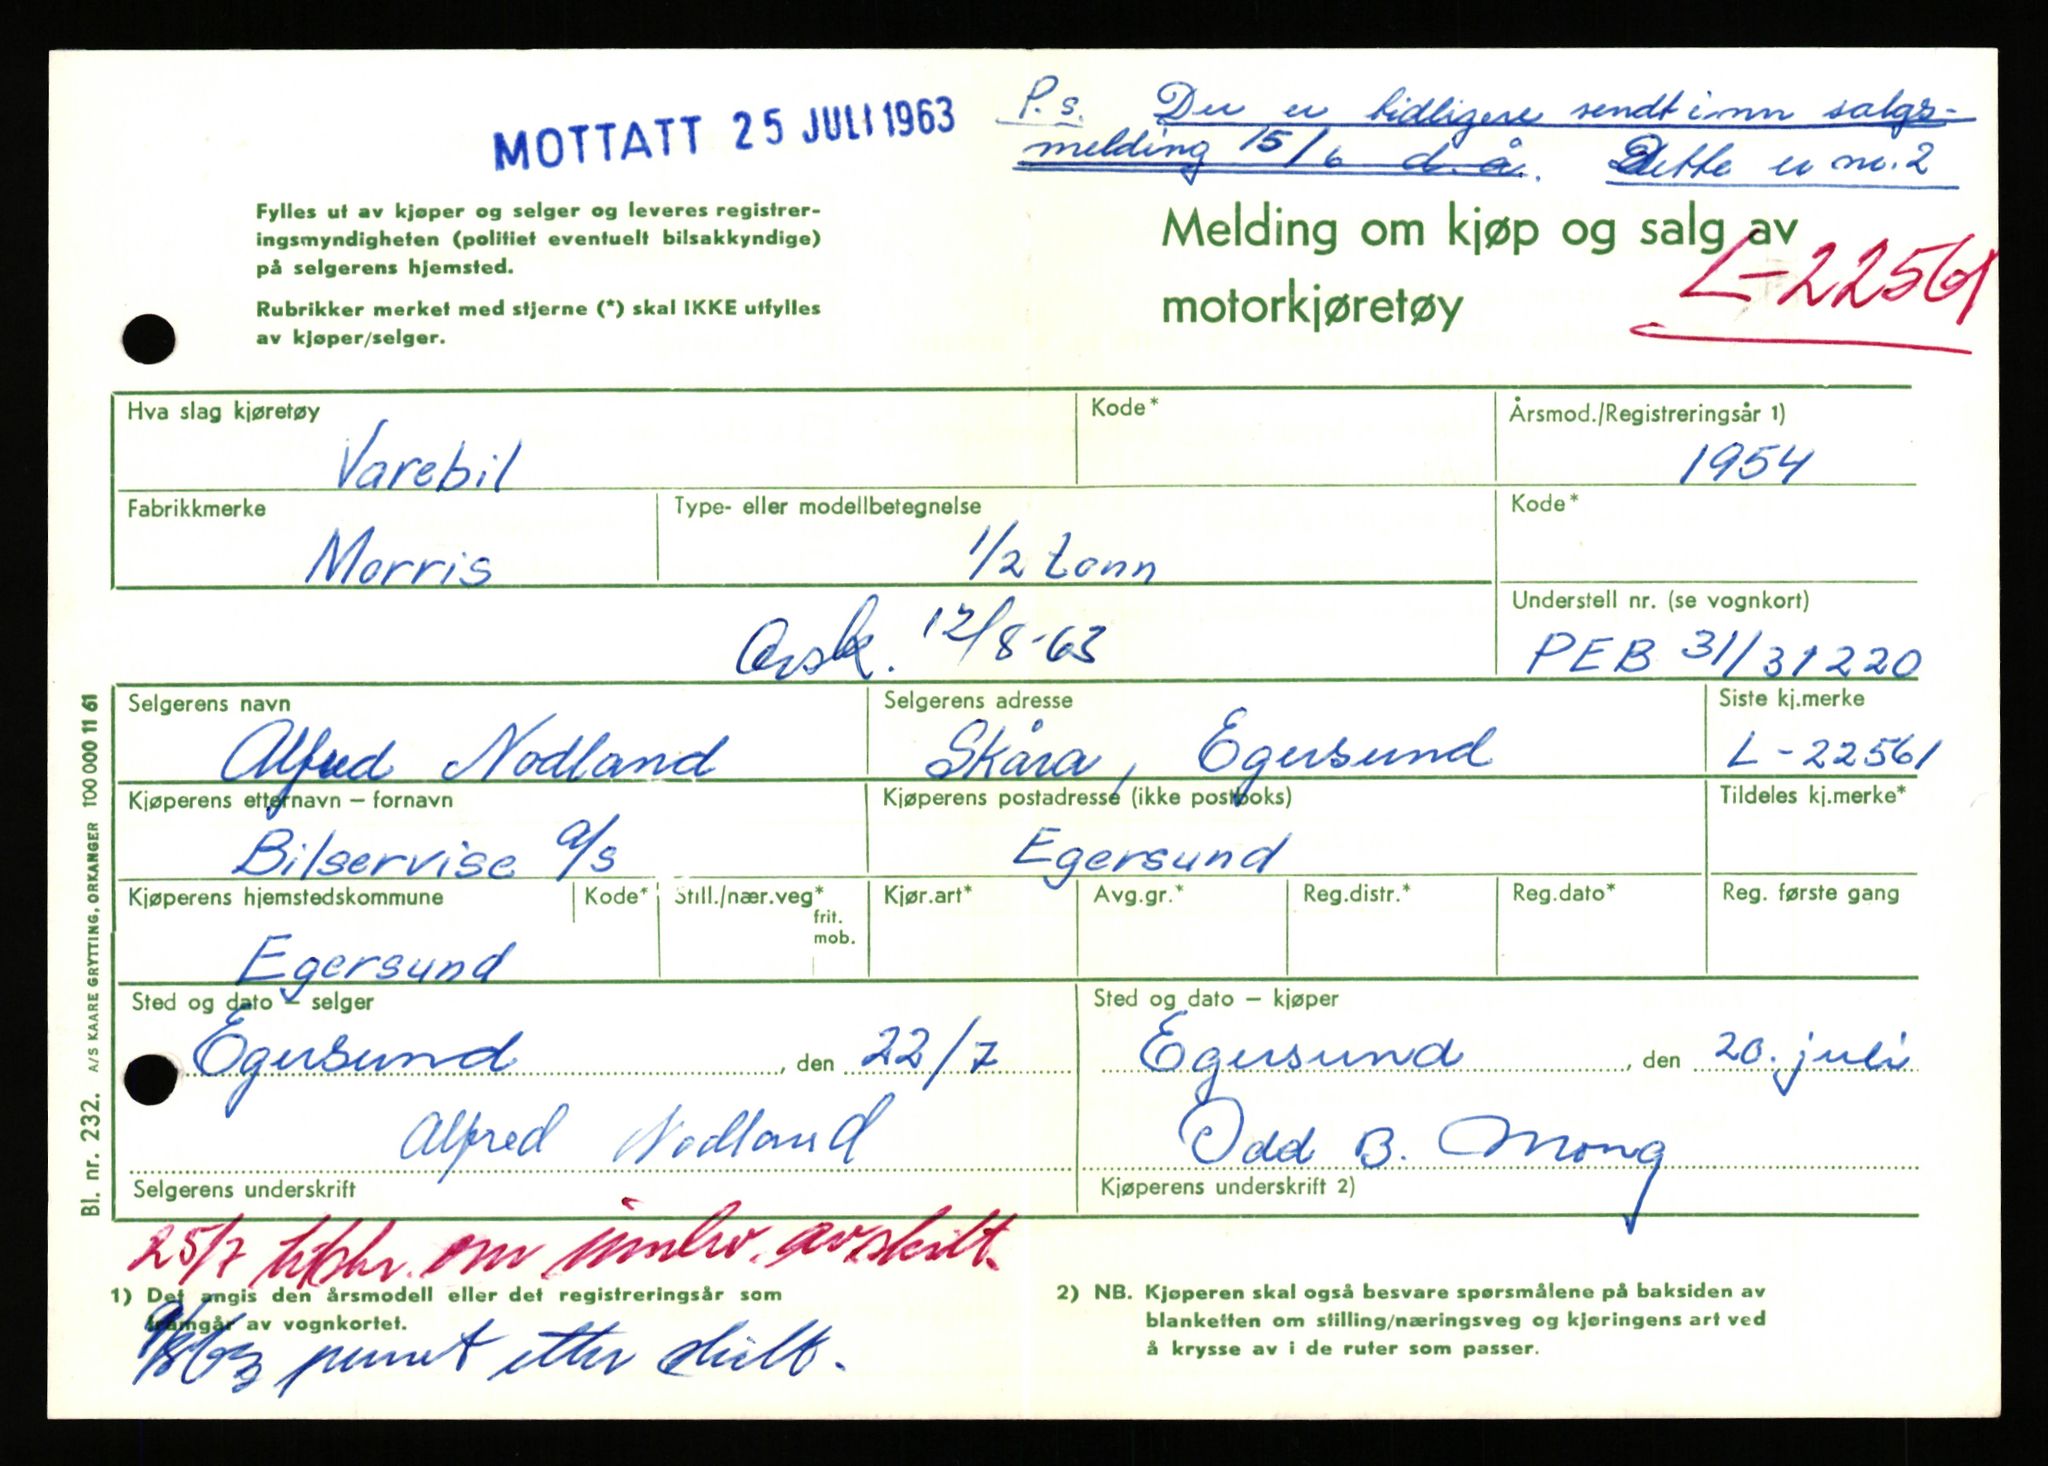 P.s. Der er tidligere sendt inn salgs-
melding 15/6 d.å. Dette er nr. 2
MOTTATT 25 JULI 1963
Fylles ut av kjøper og selger og leveres registrer-
ingsmyndigheten (politiet eventuelt bilsakkyndige)
på selgerens hjemsted.
Rubrikker merket med stjerne (*) skal IKKE utfylles
av kjøper/selger.
Melding om kjøp og salg av
motorkjøretøy
L-22561
Hva slag kjøretøy
Kode*
Årsmod./Registreringsår 1)
Varebil
1954
Fabrikkmerke
Type- eller modellbetegnelse
Kode*
Morris
1/2 tonn
Understell nr. (se vognkort)
Avsk. 12/8-63
PEB 31/31220
Selgerens navn
Selgerens adresse
Siste kj.merke
Alfred Nodland
Skåra, Egersund
L-22561
Kjøperens etternavn – fornavn
Kjøperens postadresse (ikke postboks)
Tildeles kj.merke*
Bilservise a/s
Egersund
Kjøperens hjemstedskommune
Kode*
Still./nær.veg*
frit.
mob.
Kjør.art*
Avg.gr.*
Reg.distr.*
Reg.dato*
Reg. første gang
Egersund
Sted og dato – selger
Sted og dato – kjøper
Egersund, den 22/7
Egersund, den 20. juli
Alfred Nodland
Odd B. Mong
Selgerens underskrift
Kjøperens underskrift 2)
25/7 om innlev. avskilt.
1) Det angis den årsmodell eller det registreringsår som
framgår av vognkortet.
9/8 63 purret etter skilt.
2) NB. Kjøperen skal også besvare spørsmålene på baksiden av
blanketten om stilling/næringsveg og kjøringens art ved
å krysse av i de ruter som passer.
Bl. nr. 232. A/S KAARE GRYTTING, ORKANGER 100 000 11 61